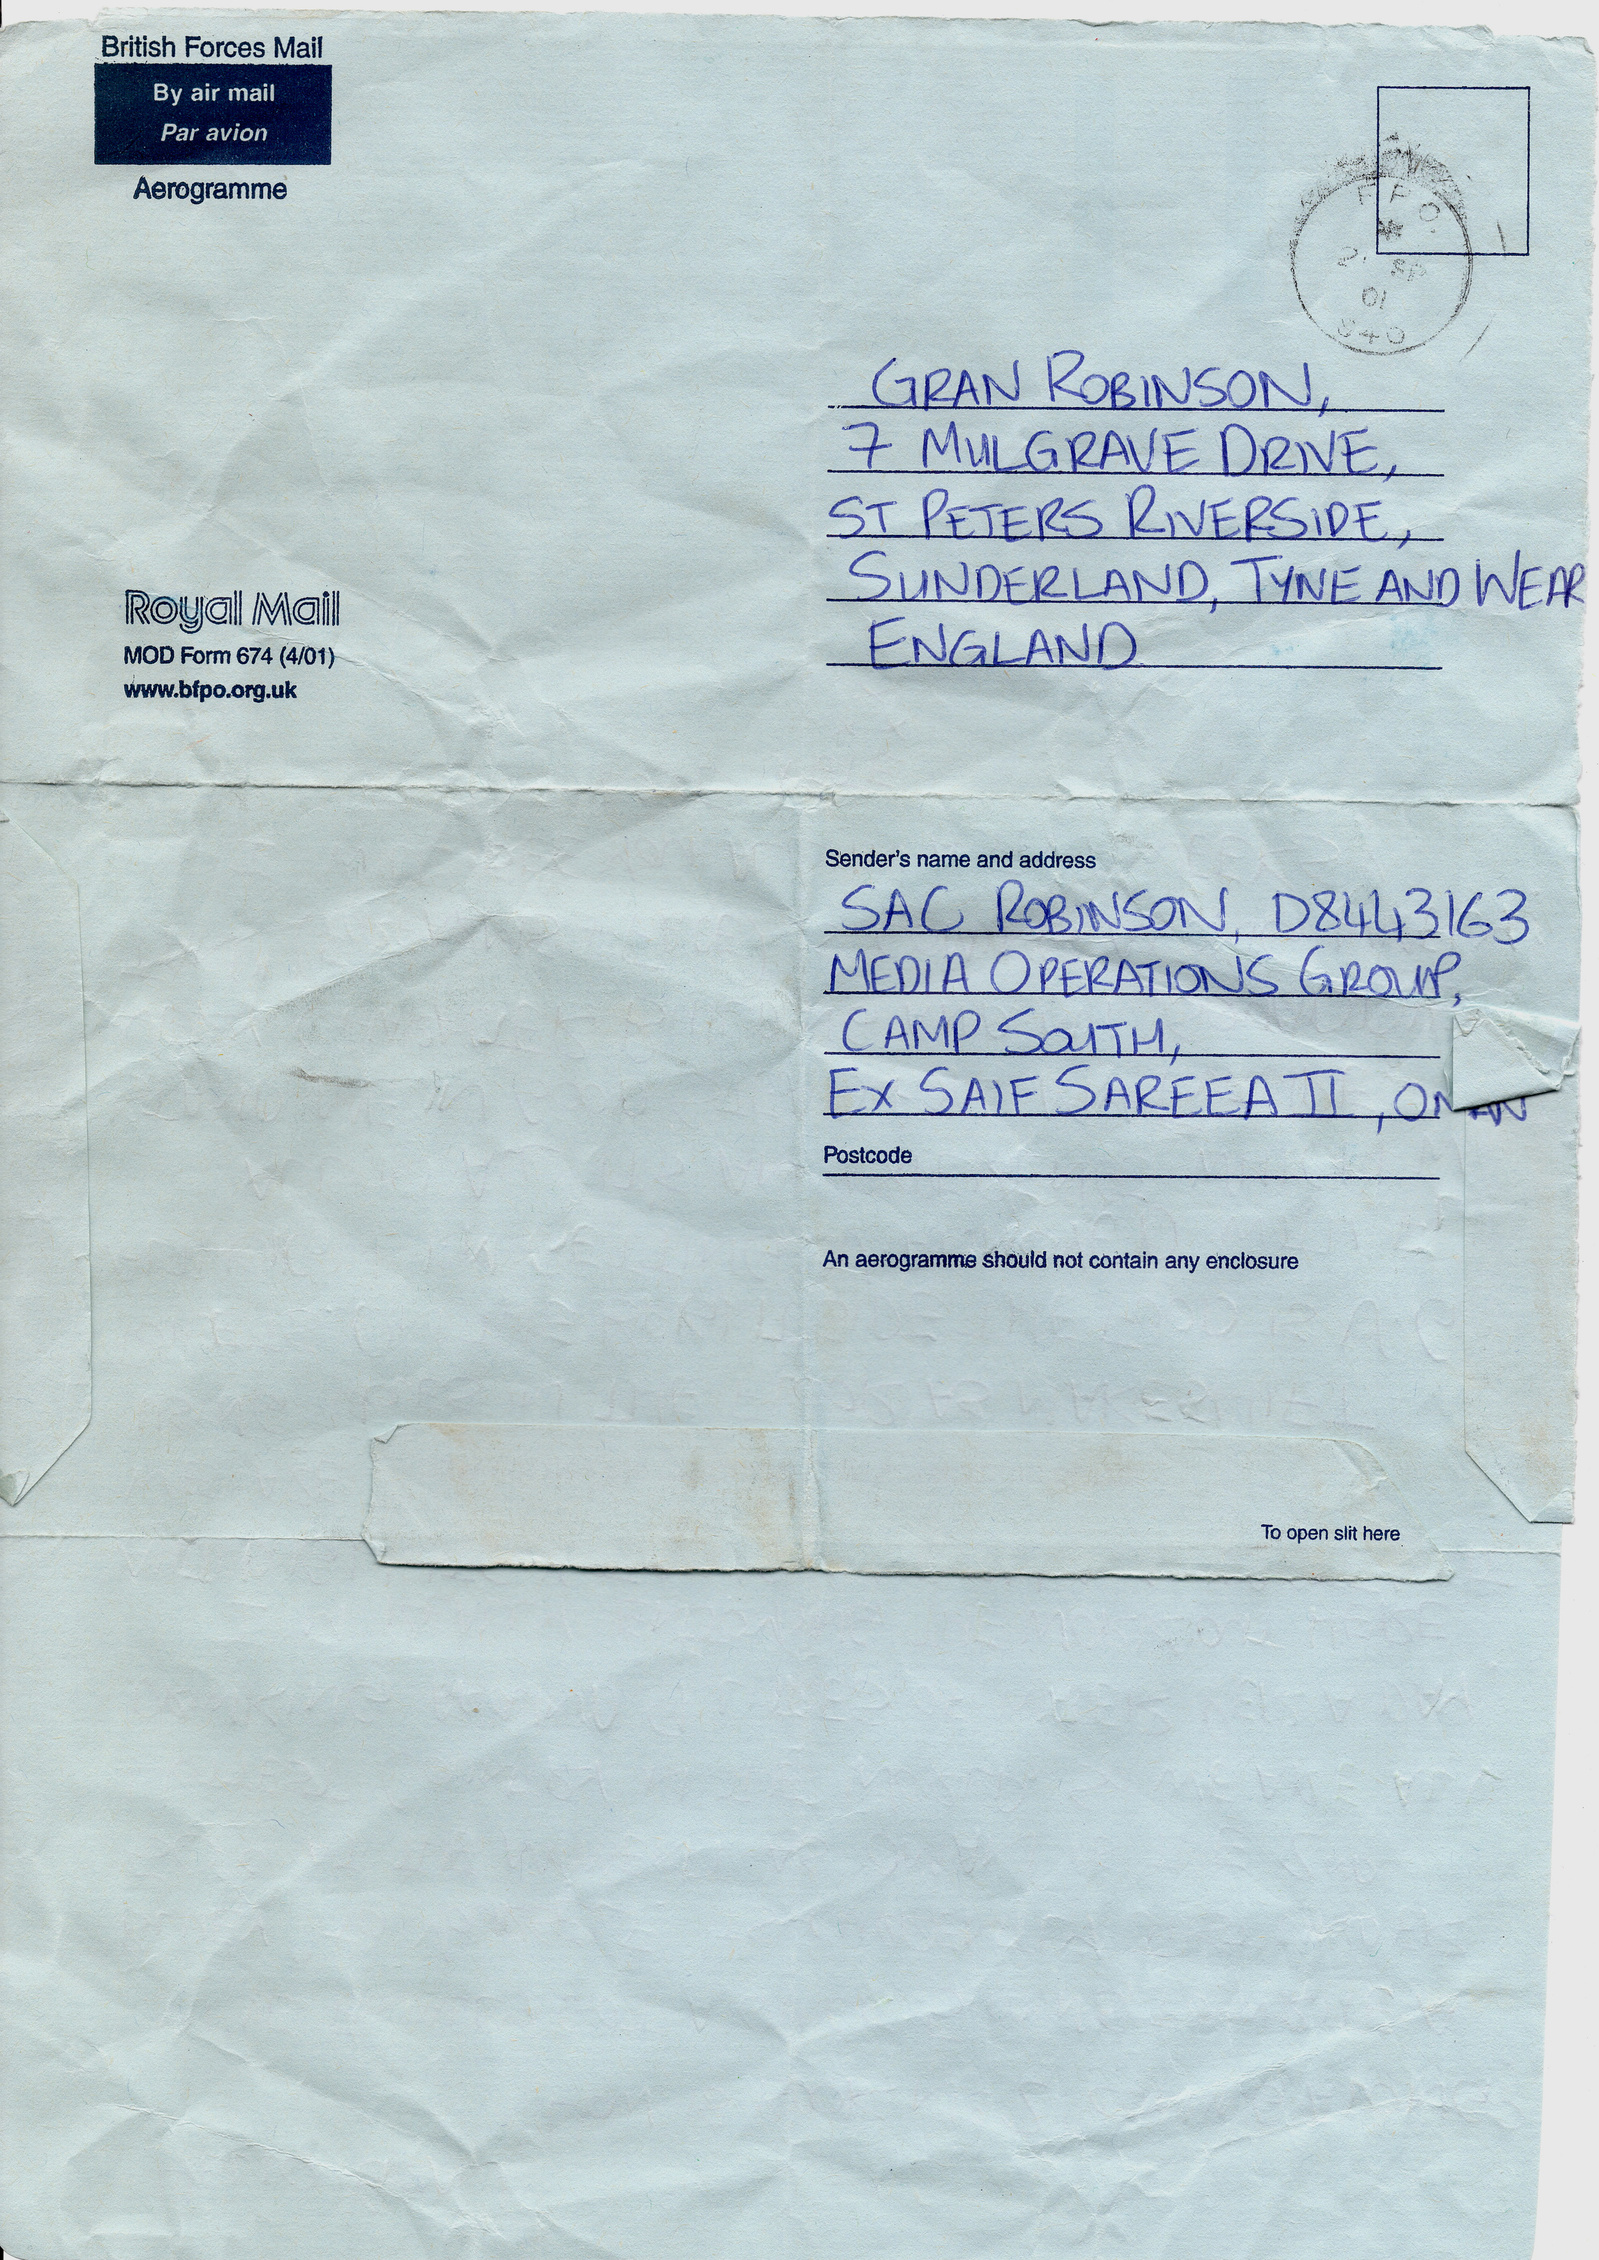 British Forces Mail
By air mail
Par avion
Aerogramme
F P O
SP
01
GRAN ROBINSON,
7 MULGRAVE DRIVE,
ST PETERS RIVERSIDE,
SUNDERLAND, TYNE AND WEAR
ENGLAND
Royal Mail
MOD Form 674 (4/01)
www.bfpo.org.uk
Sender's name and address
SAC ROBINSON, D8443163
MEDIA OPERATIONS GROUP,
CAMP SOUTH,
EX SAIF SAREEA II, OMAN
Postcode
An aerogramme should not contain any enclosure
To open slit here